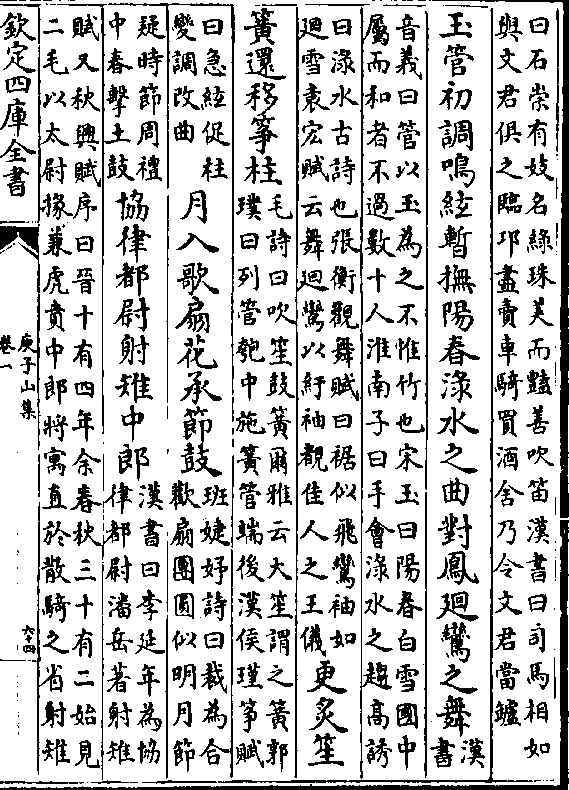 曰石崇有妓名綠珠美而豔善吹笛漢書曰司馬相如
與文君俱之臨邛盡賣車騎買酒舍乃令文君當鑪
玉管初調鳴絃暫撫陽春淥水之曲對鳳廻鸞之舞漢書
音義曰管以玉為之不惟竹也宋玉曰陽春白雪國中
屬而和者不過數十人淮南子曰手會淥水之趨高誘
曰淥水古詩也張衡觀舞賦曰裾似飛鸞袖如
廻雪袁宏賦云舞廻鸞以紆袖觀佳人之玉儀更炙笙
簧還移箏柱毛詩曰吹笙鼓簧爾雅云大笙謂之簧郭
璞曰列管匏中施簧管端後漢侯瑾箏賦
曰急絃促柱
變調改曲月入歌扇花承節鼓班婕妤詩曰裁為合
歡扇團圓似明月節
疑時節周禮
中春擊土鼓協律都尉射雉中郎漢書曰李延年為協
律都尉潘岳著射雉
賦又秋興賦序曰晉十有四年余春秋三十有二始見
二毛以太尉掾兼虎賁中郎將寓直於散騎之省射雉
欽定四庫全書
庾子山集
卷一
六十四